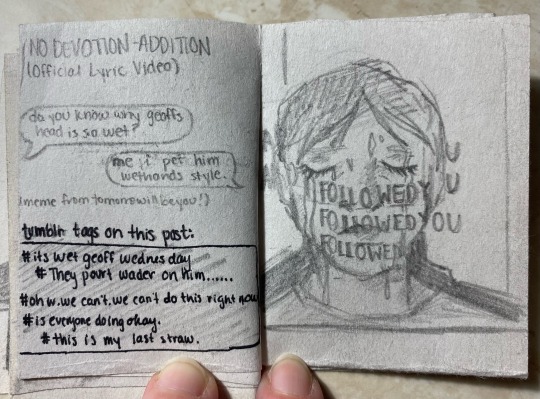 NO DEVOTION-ADDITION
(Official Lyric Video)
do you know why geoffs
head is so wet?
me i pet him
wethands style.
(meme from tomorrowillbeyou!)
tumblr tags on this post:
#its wet geoff wednesday
#They pourt wader on him......
#oh w.we can't.we can't do this right now
#is everyone doing okay.
#this is my last straw.
FOLLOWED YOU
FOLLOWED YOU
FOLLOWED